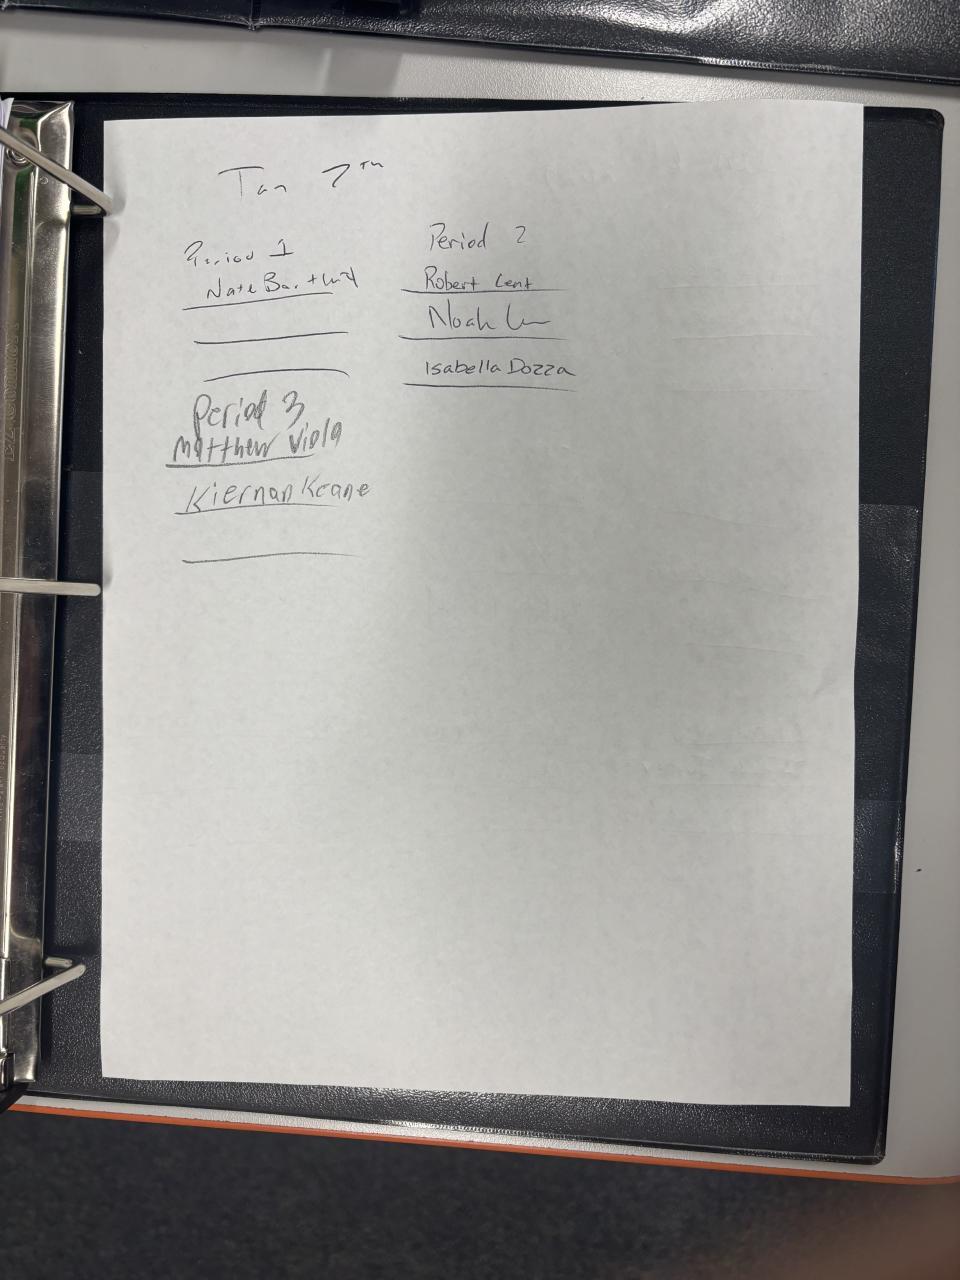 Jan 7th
Period 1
Nate
Period 2
Robert Lent
Noah
Isabella Dozza
Period 3
Matthew Viola
Kiernan Keane